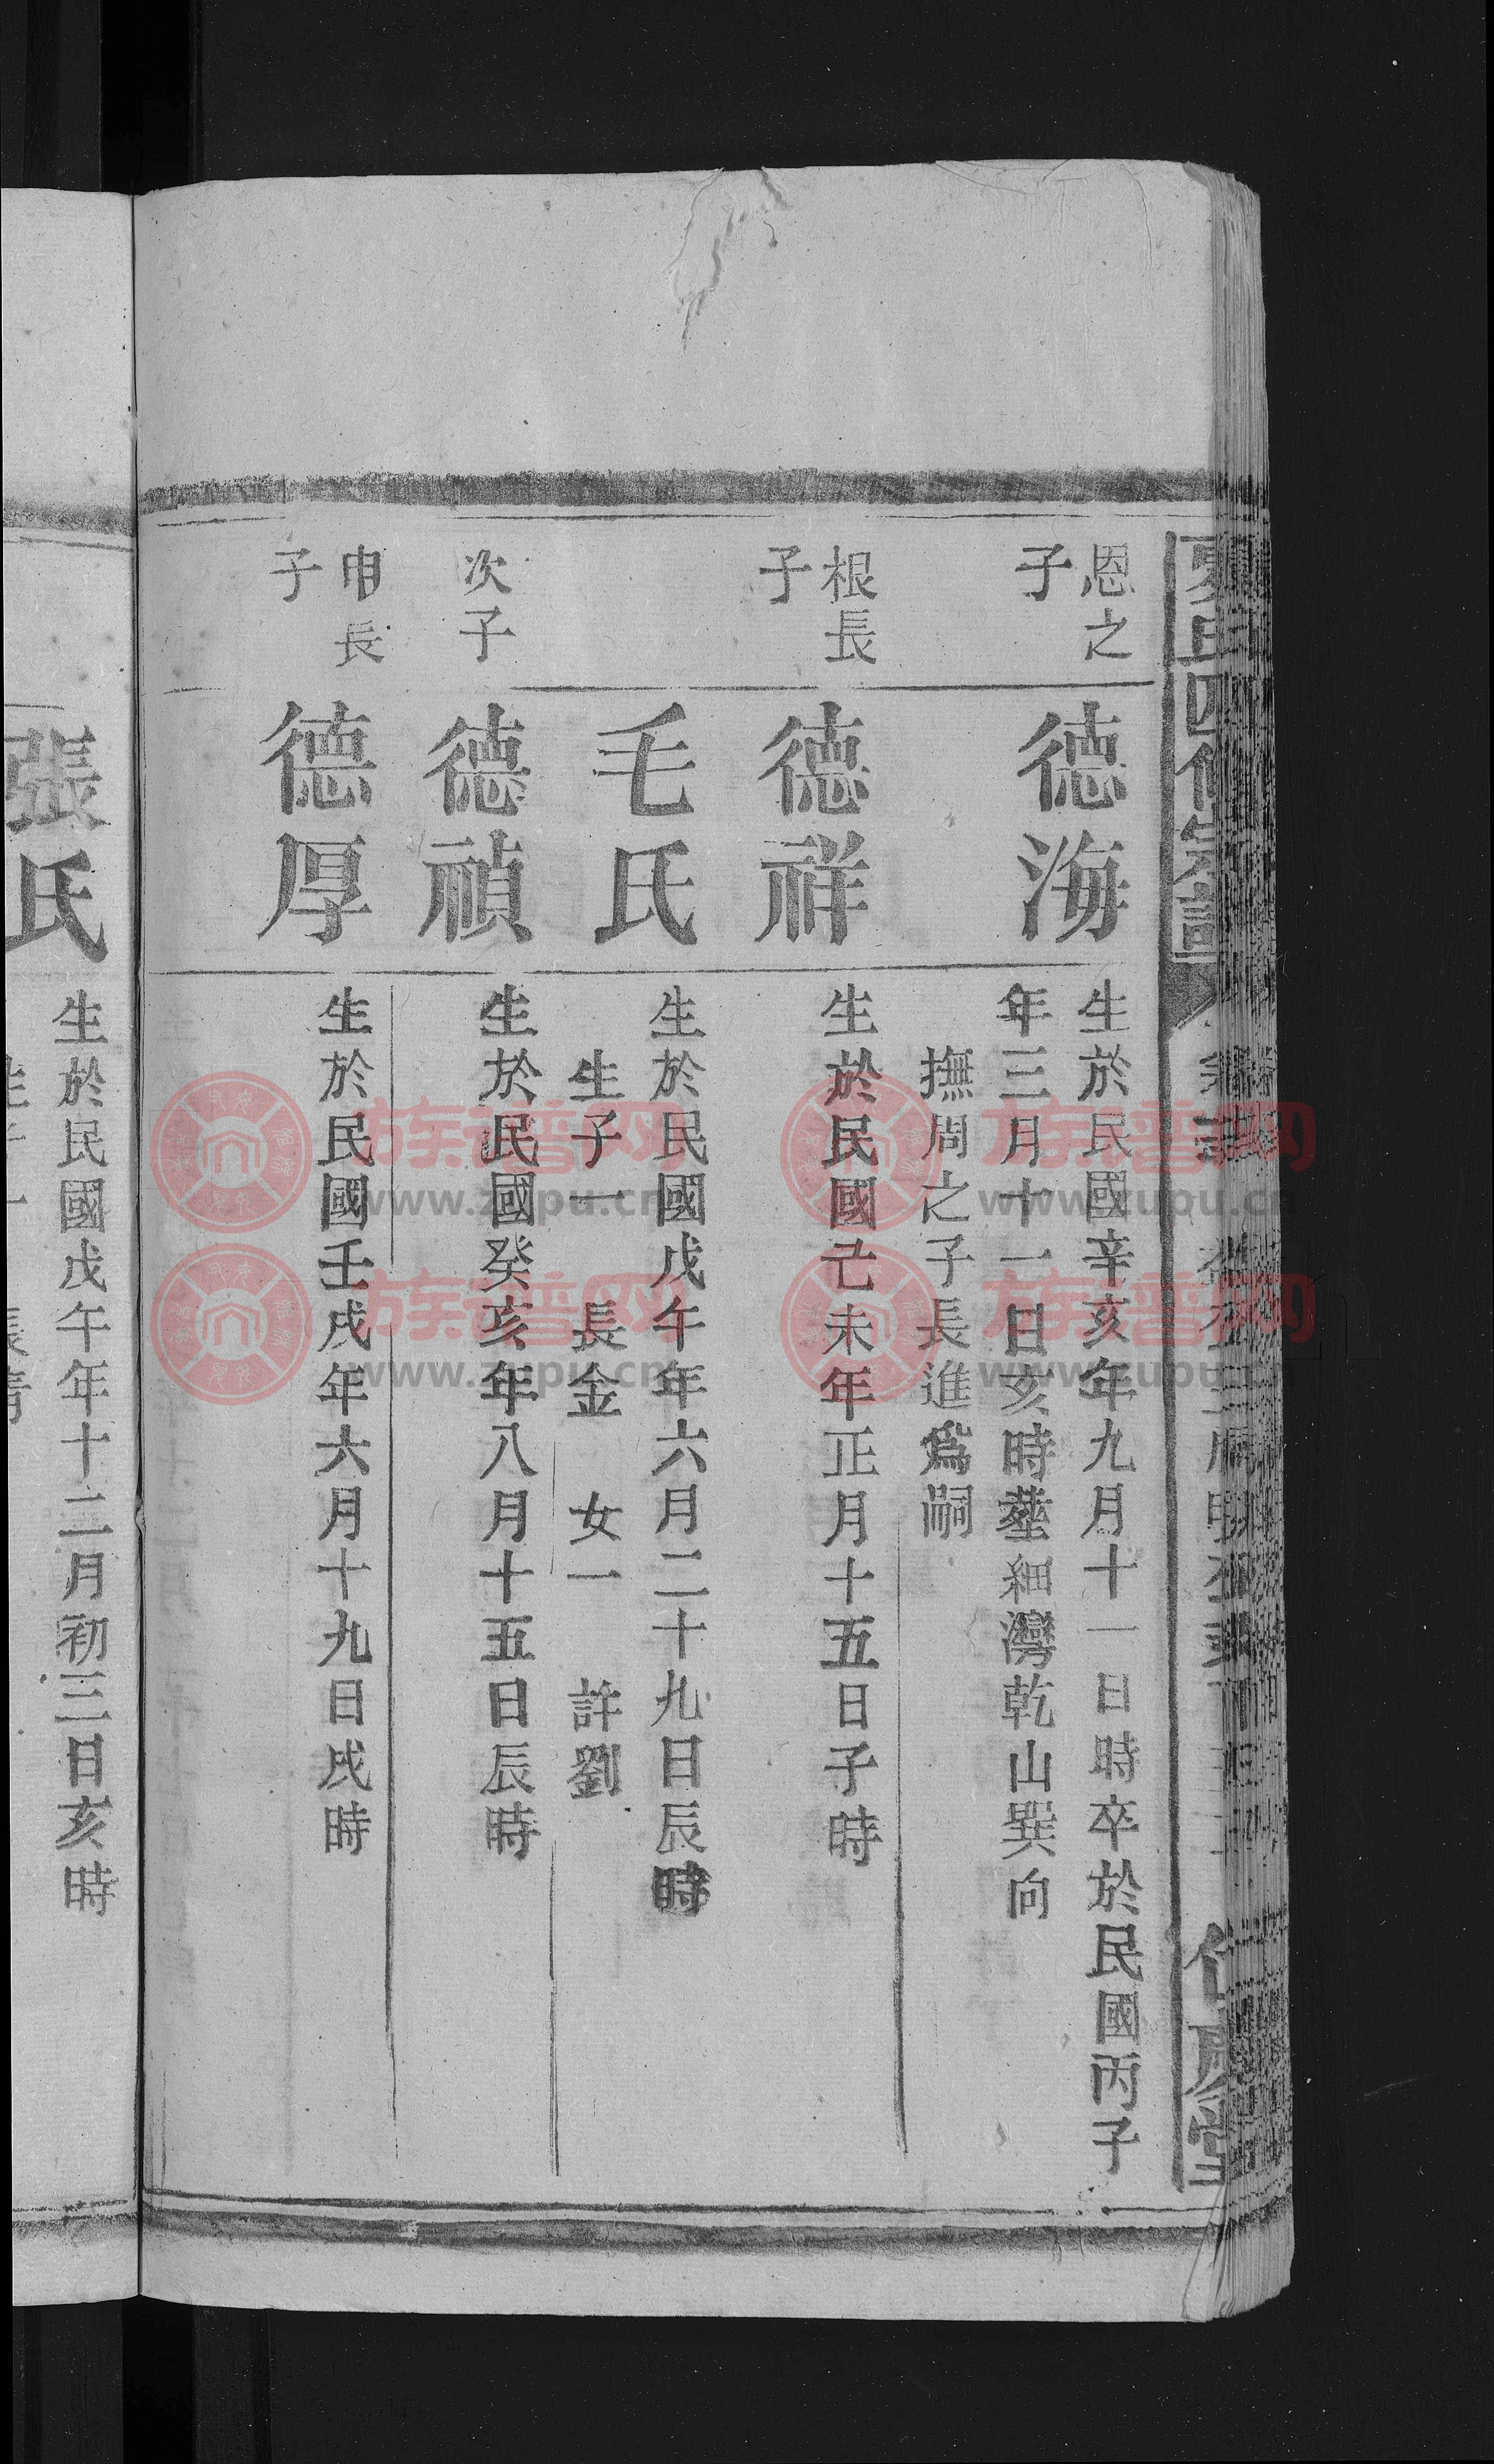 恩之
子
德海
生於民國辛亥年九月十一日時卒於民國丙子
年三月十一日亥時葬細灣乾山巽向
撫周之子長進為嗣
根長
子
德祥
生於民國己未年正月十五日子時
毛氏
生於民國戊午年六月二十九日辰時
生子一 長金 女一 許劉
次子
德禎
生於民國癸亥年八月十五日辰時
申長
子
德厚
生於民國壬戌年六月十九日戌時
張氏
生於民國戊午年十二月初三日亥時
族譜网
www.zupu.cn
族譜网
www.zupu.cn
族譜网
www.zupu.cn
族譜网
www.zupu.cn